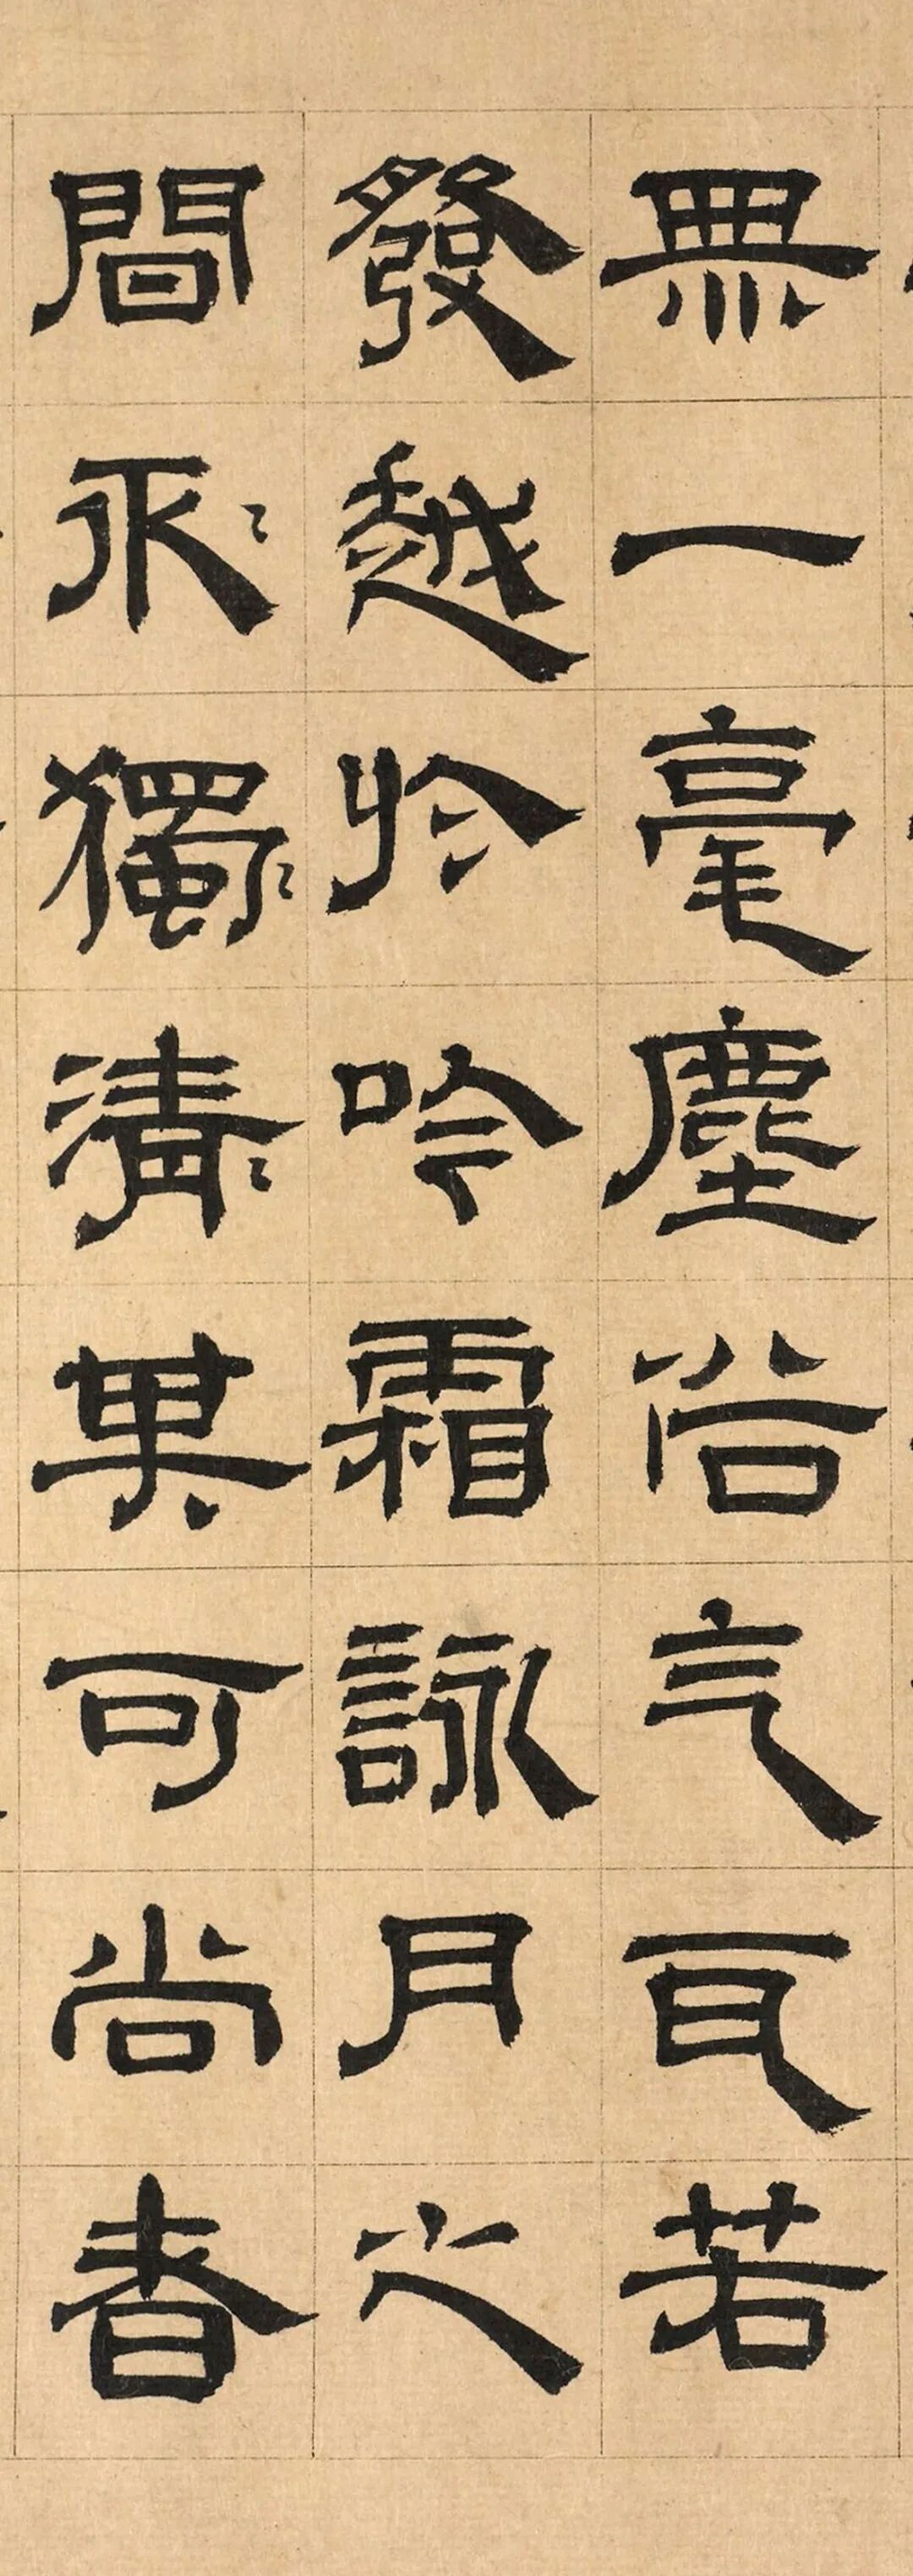 無一毫塵俗气若
發越於吟霜詠月之
間獨〻清〻其可尚者